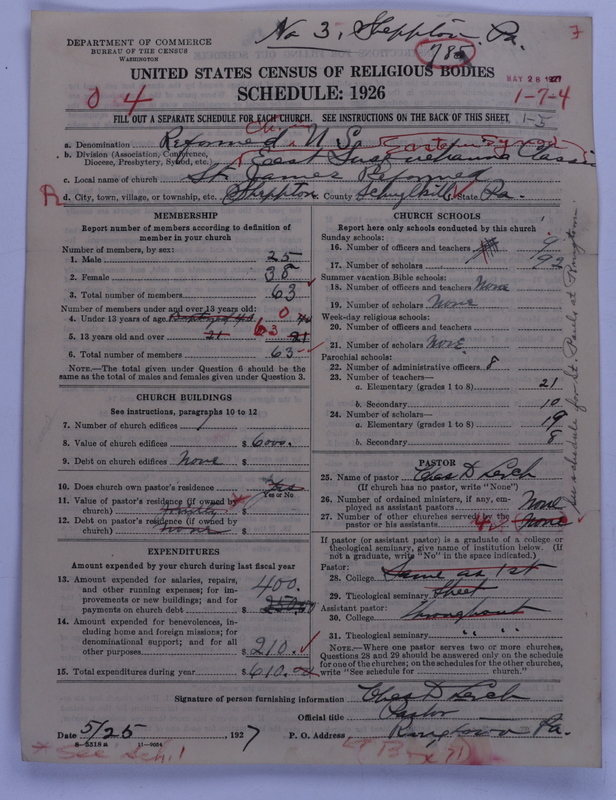 No 3, Sheppton, Pa.
7
DEPARTMENT OF COMMERCE
BUREAU OF THE CENSUS
WASHINGTON
785
UNITED STATES CENSUS OF RELIGIOUS BODIES
MAY 28 1927
SCHEDULE: 1926
0 4
1-7-4
FILL OUT A SEPARATE SCHEDULE FOR EACH CHURCH. SEE INSTRUCTIONS ON THE BACK OF THIS SHEET
1-5
a. Denomination Reformed U S
b. Division (Association, Conference, Diocese, Presbytery, Synod, etc.) East Susquehanna Classis
Eastern Synod
c. Local name of church St. James Reformed
R d. City, town, village, or township, etc. Sheppton County Schuylkill State Pa.
MEMBERSHIP
Report number of members according to definition of
member in your church
Number of members, by sex:
1. Male 25
2. Female 38
3. Total number of members 63
Number of members under and over 13 years old:
4. Under 13 years of age 0
5. 13 years old and over 21 63 21
6. Total number of members 63
NOTE.—The total given under Question 6 should be the
same as the total of males and females given under Question 3.
CHURCH BUILDINGS
See instructions, paragraphs 10 to 12
7. Number of church edifices 1
8. Value of church edifices $ 6000.
9. Debt on church edifices None $
10. Does church own pastor's residence Yes
Yes or No
11. Value of pastor's residence (if owned by
church) $
12. Debt on pastor's residence (if owned by
church) None $
EXPENDITURES
Amount expended by church during last fiscal year
13. Amount expended for salaries, repairs,
and other running expenses; for im-
provements or new buildings; and for
payments on church debt $
400.
14. Amount expended for benevolences, in-
cluding home and foreign missions; for
denominational support; and for all
other purposes $ 210.
15. Total expenditures during year $ 610.
CHURCH SCHOOLS
Report here only schools conducted by this church
Sunday schools:
16. Number of officers and teachers 9
17. Number of scholars 92
Summer vacation Bible schools:
18. Number of officers and teachers None
19. Number of scholars None
Week-day religious schools:
20. Number of officers and teachers
21. Number of scholars None
Parochial schools:
22. Number of administrative officers 8
23. Number of teachers—
a. Elementary (grades 1 to 8) 21
b. Secondary 10
24. Number of scholars—
a. Elementary (grades 1 to 8) 19
b. Secondary 8
PASTOR
25. Name of pastor Chas D Lerch
(If church has no pastor, write "None")
26. Number of ordained ministers, if any, em-
ployed as assistant pastors None
27. Number of other churches served by the
pastor or his assistants 4 None
If pastor (or assistant pastor) is a graduate of a college or
theological seminary, give name of institution below. (If
not a graduate, write "No" in the space indicated.)
Pastor:
28. College Same as 1st
29. Theological seminary Sheet
Assistant pastor:
30. College throughout
31. Theological seminary " " "
NOTE.—Where one pastor serves two or more churches,
Questions 28 and 29 should be answered only on the schedule
for one of the churches; on the schedules for the other churches,
write "See schedule for church."
See schedule for St. Pauls at Ringtown.
Signature of person furnishing information Chas D Lerch
Official title Pastor
Date 5/25, 1927 P. O. Address Ringtown Pa.
8-5318a 11-9024
* See Sch. 1
(Box 71)